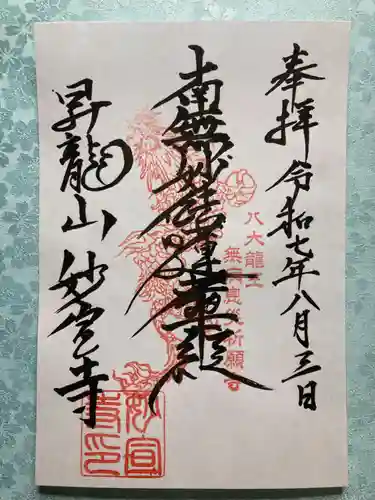 奉拝 令和七年八月三日
八大龍王
南無妙法蓮華経
昇龍山 妙宣寺
妙宣
寺印